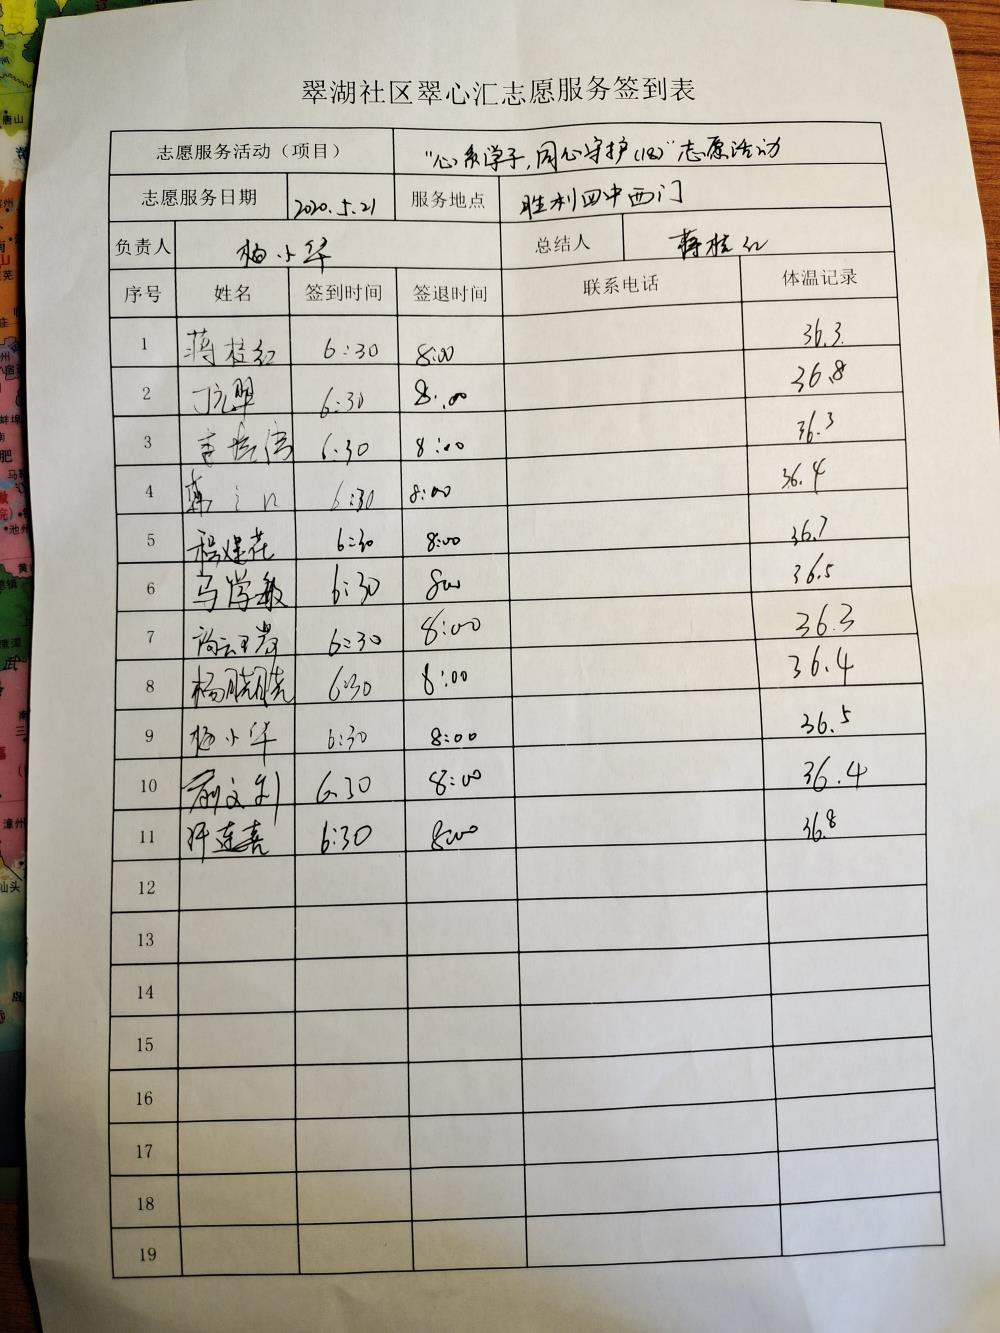 翠湖社区翠心汇志愿服务签到表
志愿服务活动（项目） "心系学子，同心守护(18)"志愿活动
志愿服务日期 2020.5.21 服务地点 胜利四中西门
负责人 梅小华 总结人 蒋桂红
序号 姓名 签到时间 签退时间 联系电话 体温记录
1 蒋桂红 6:30 8:00 36.3
2 6:30 8:00 36.8
3 6:30 8:00 36.3
4 6:30 8:00 36.4
5 程建花 6:30 8:00 36.7
6 马学敏 6:30 800 36.5
7 6:30 8:00 36.3
8 杨晓晓 6:30 8:00 36.4
9 梅小华 6:30 8:00 36.5
10 6:30 8:00 36.4
11 许连喜 6:30 8:00 36.8
12
13
14
15
16
17
18
19